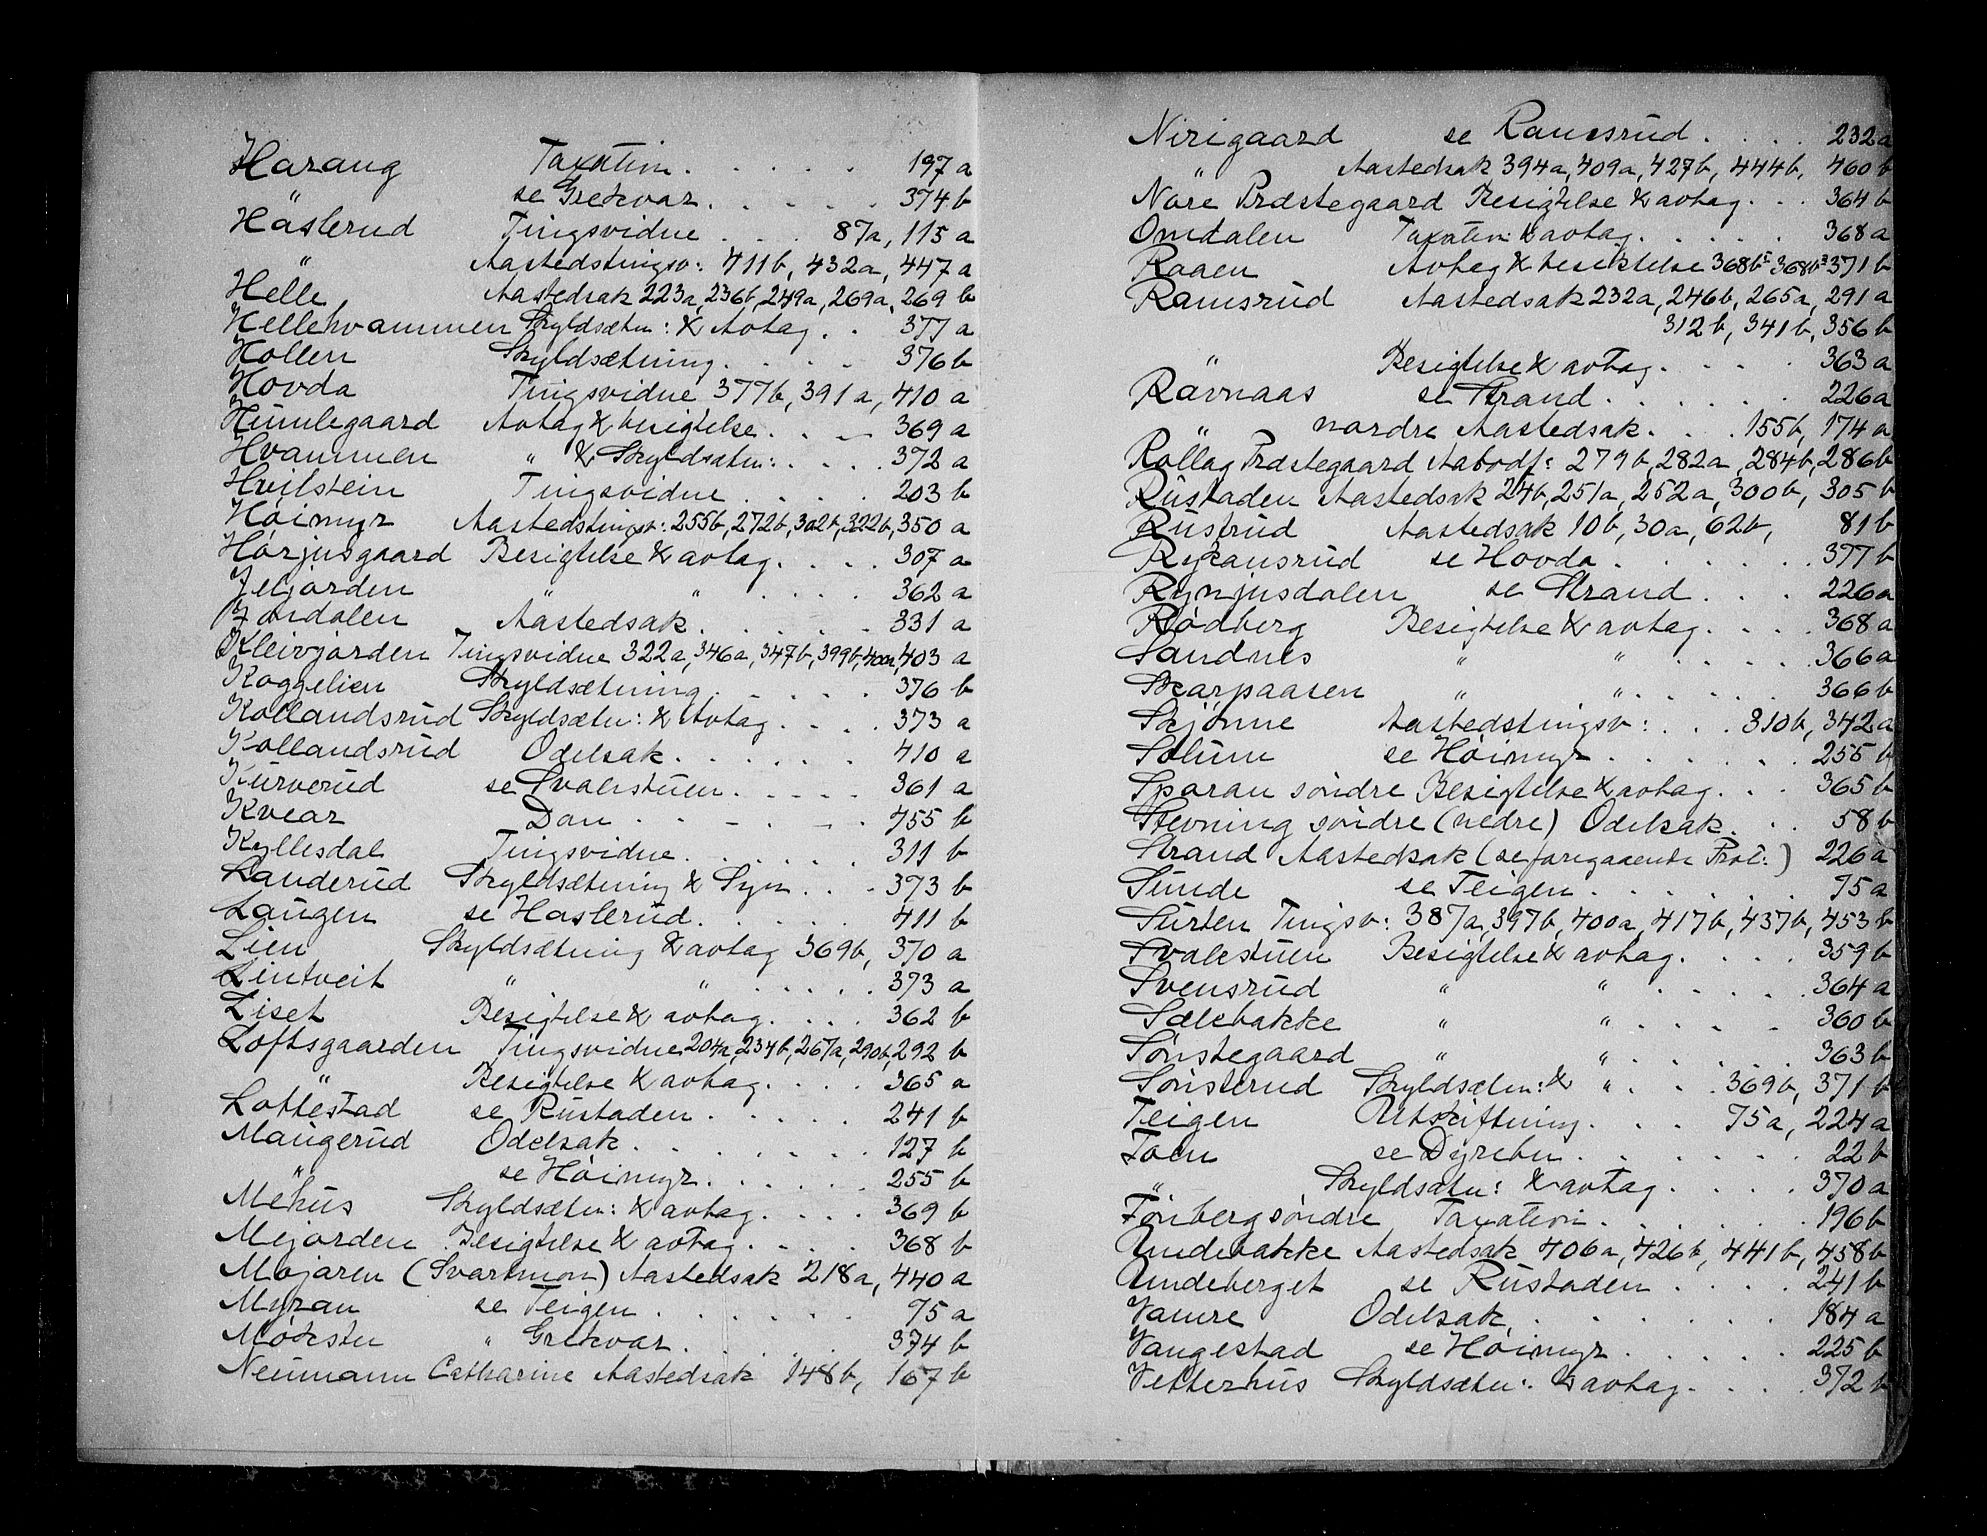 Harang Taxation. . . . . . 197 a
" se Grekvar. . . . . 374 b
Häslerud Tingsvidne . . . 87a, 115 a
" Aastedstingsv: 411b, 432a, 447 a
Helle Aastedsak 223a, 236b, 249a, 269a, 269 b
Hellehvammen Skyldsætn: & Avtag. . 377 a
Hollen Skyldsætning. . . . . 376 b
Hovda Tingsvidne 377b, 391 a, 410 a
Humlegaard Avtag & besigtelse. . . . 369 a
Hvammen " & Skyldsætn: . . . . 372 a
Hvilstein Tingsvidne . . . . . 203 b
Höimyr Aastedstingsv: 255b, 272b, 302b, 322b, 350 a
Hørjusgaard Besigtelse & avtag. . . . 307 a
Jeljorden " " . . . . 362 a
Jondalen Aastedsak. . . . . . 331 a
Kleivjorden Tingsvidne 322a, 346a, 347b, 399b, 400a, 403 a
Koggelien Skyldsætning. . . . . 376 b
Kollandsrud Skyldsætn: & Avtag . . . . 373 a
Kollandsrud Odelsak. . . . . . 410 a
Kurverud se Svalestuen. . . . . 361 a
Kvear Dom . . . . . . 455 b
Kyllesdal Tingsvidne. . . . . . 311 b
Landerud Skyldsætning & Syn . . . 373 b
Laugen se Haslerud. . . . . 411 b
Lien Skyldsætning & avtag 369b, 370 a
Lintveit " " . . . . . 373 a
Liset Besigtelse & avtag. . . . 362 b
Loftsgaarden Tingsvidne 204a, 234b, 267a, 290b, 292 b
" Besigtelse & avtag. . . . 365 a
Loftestad se Rustaden . . . . . 241 b
Maugerud Odelsak. . . . . . . 127 b
" se Höimyr. . . . . . 255 b
Mehus Skyldsætn: & avtag. . . . 369 b
Mejorden Besigtelse & avtag. . . . 368 b
Mojaren (Svartmon) Aastedsak 218a, 440 a
Myran se Teigen . . . . . . 75 a
Mökstu " Grekvar. . . . . . 374 b
Neumann Catharine Aastedsak 148b, 167 b
Nirigaard se Ramsrud. . . . . 232a
" Aastedsak 394a, 409a, 427b, 444b, 460 b
Nore Præstegaard Besigtelse & avtag. . . 364 b
Omdalen Taxation & avtag. . . . . . 368a
Raaen Avtag & besiktelse 368b 368b 371 b
Ramsrud Aastedsak 232a, 246b, 265a, 291 a
312 b, 341 b, 356 b
" Besigtelse & avtag. . . . . 363 a
Ravnaas se Strand. . . . . . 226a
" nordre Aastedsak. . . . 155b, 174 a
Rollag Præstegaard Aabodf: 279b, 282a, 284b, 286b
Rustaden Aastedsak 24b, 251a, 252a, 300b, 305 b
Rustrud Aastedsak 10b, 30a, 62b, 81 b
Rykansrud se Hovda . . . . . . 377 b
Rynjusdalen se Strand . . . 226a
Rödberg Besigtelse & avtag. . . . 368 a
Sandnes " " . . . . . 366a
Skarpaasen " " . . . . . 366 b
Skjönne Aastedstingsv: . . . 310b, 342a
Solum se Höimyr. . . . . . 255 b
Sporan söndre Besigtelse & avtag. . . 365 b
Stevning söndre (nedre) Odelsak. . . 58 b
Strand Aastedsak (se foregaaende Prot:) 226 a
Sunde se Teigen . . . . . . 75 a
Surten Tingsv: 387a, 397b, 400a, 417b, 437b, 453 b
Svalestuen Besigtelse & avtag. . . . 359 b
Svensrud " " . . . . . 364 a
Sælebakke " " . . . . . 360 b
Sönstegaard " " . . . . . 363 b
Sönsterud Skyldsætn: & " . . . 369b, 371 b
Teigen Utskiftning. . . . 75a, 224 a
Toen se Dyrebu . . . . . . 22 b
" Skyldsætn: & avtag. . . . 370a
Tönberg söndre Taxation . . . . . . 196 b
Underbakke Aastedsak 406a, 426b, 441b, 458 b
Undeberget se Rustaden . . . . 241 b
Vamre Odelsak. . . . . . . 184 a
Vangestad se Höimyr . . . . . 225 b
Vetterhus Skyldsætn: & avtag. . . . 372 b